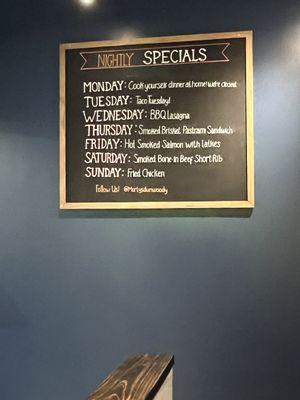 NIGHTLY SPECIALS
MONDAY: Cook yourself dinner at home! We're closed
TUESDAY: Taco Tuesday!
WEDNESDAY: BBQ Lasagna
THURSDAY: Smoked Brisket Pastrami Sandwich
FRIDAY: Hot Smoked Salmon with Latkes
SATURDAY: Smoked Bone-in Beef Short Rib
SUNDAY: Fried Chicken
Follow Us! @Martysdunwoody